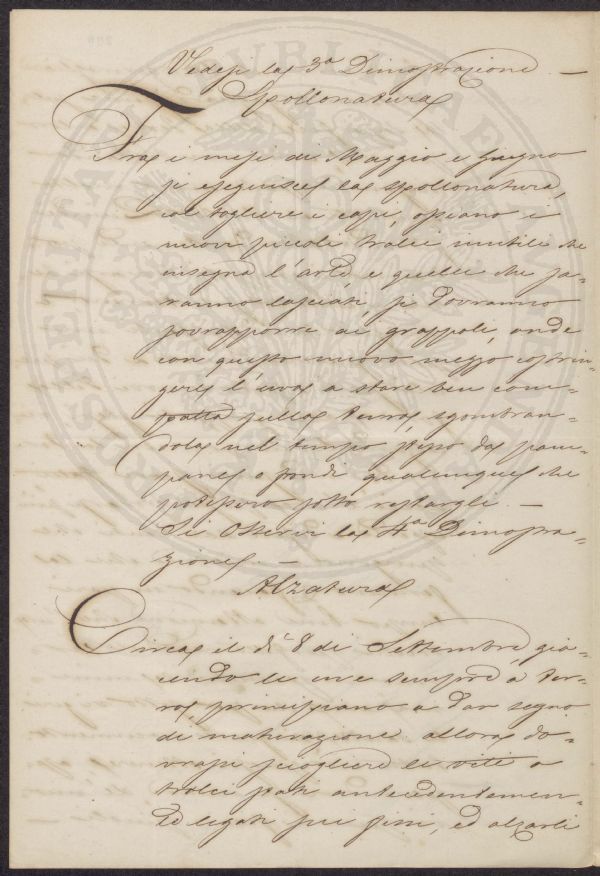 Vedesi la 3ª Dimostrazione —
Spollonatura
Fra i mesi di Maggio e Giugno
si eseguisce la spollonatura,
col togliere i capi, o siano i
nuovi piccoli tralci inutili che
insegna l'arte, e quelli che sa-
ranno lasciati, si dovranno
sovrapporre ai grappoli, onde
con questo nuovo mezzo costrin-
gere l'uva a stare ben com-
patta sulla terra, sgombran-
dola nel tempo stesso da pam-
pane o frondi qualunque che
potessero sotto restargli. —
Si osservi la 4ª Dimostra-
zione. —
Alzatura
Circa il dì 8 di Settembre gia-
cendo le uve sempre a ter-
ra, principiano a dar segno
di maturazione allora do-
vrassi sciogliere le viti o
tralci stati antecedentemen-
te legati sui fissi, ed alzarli